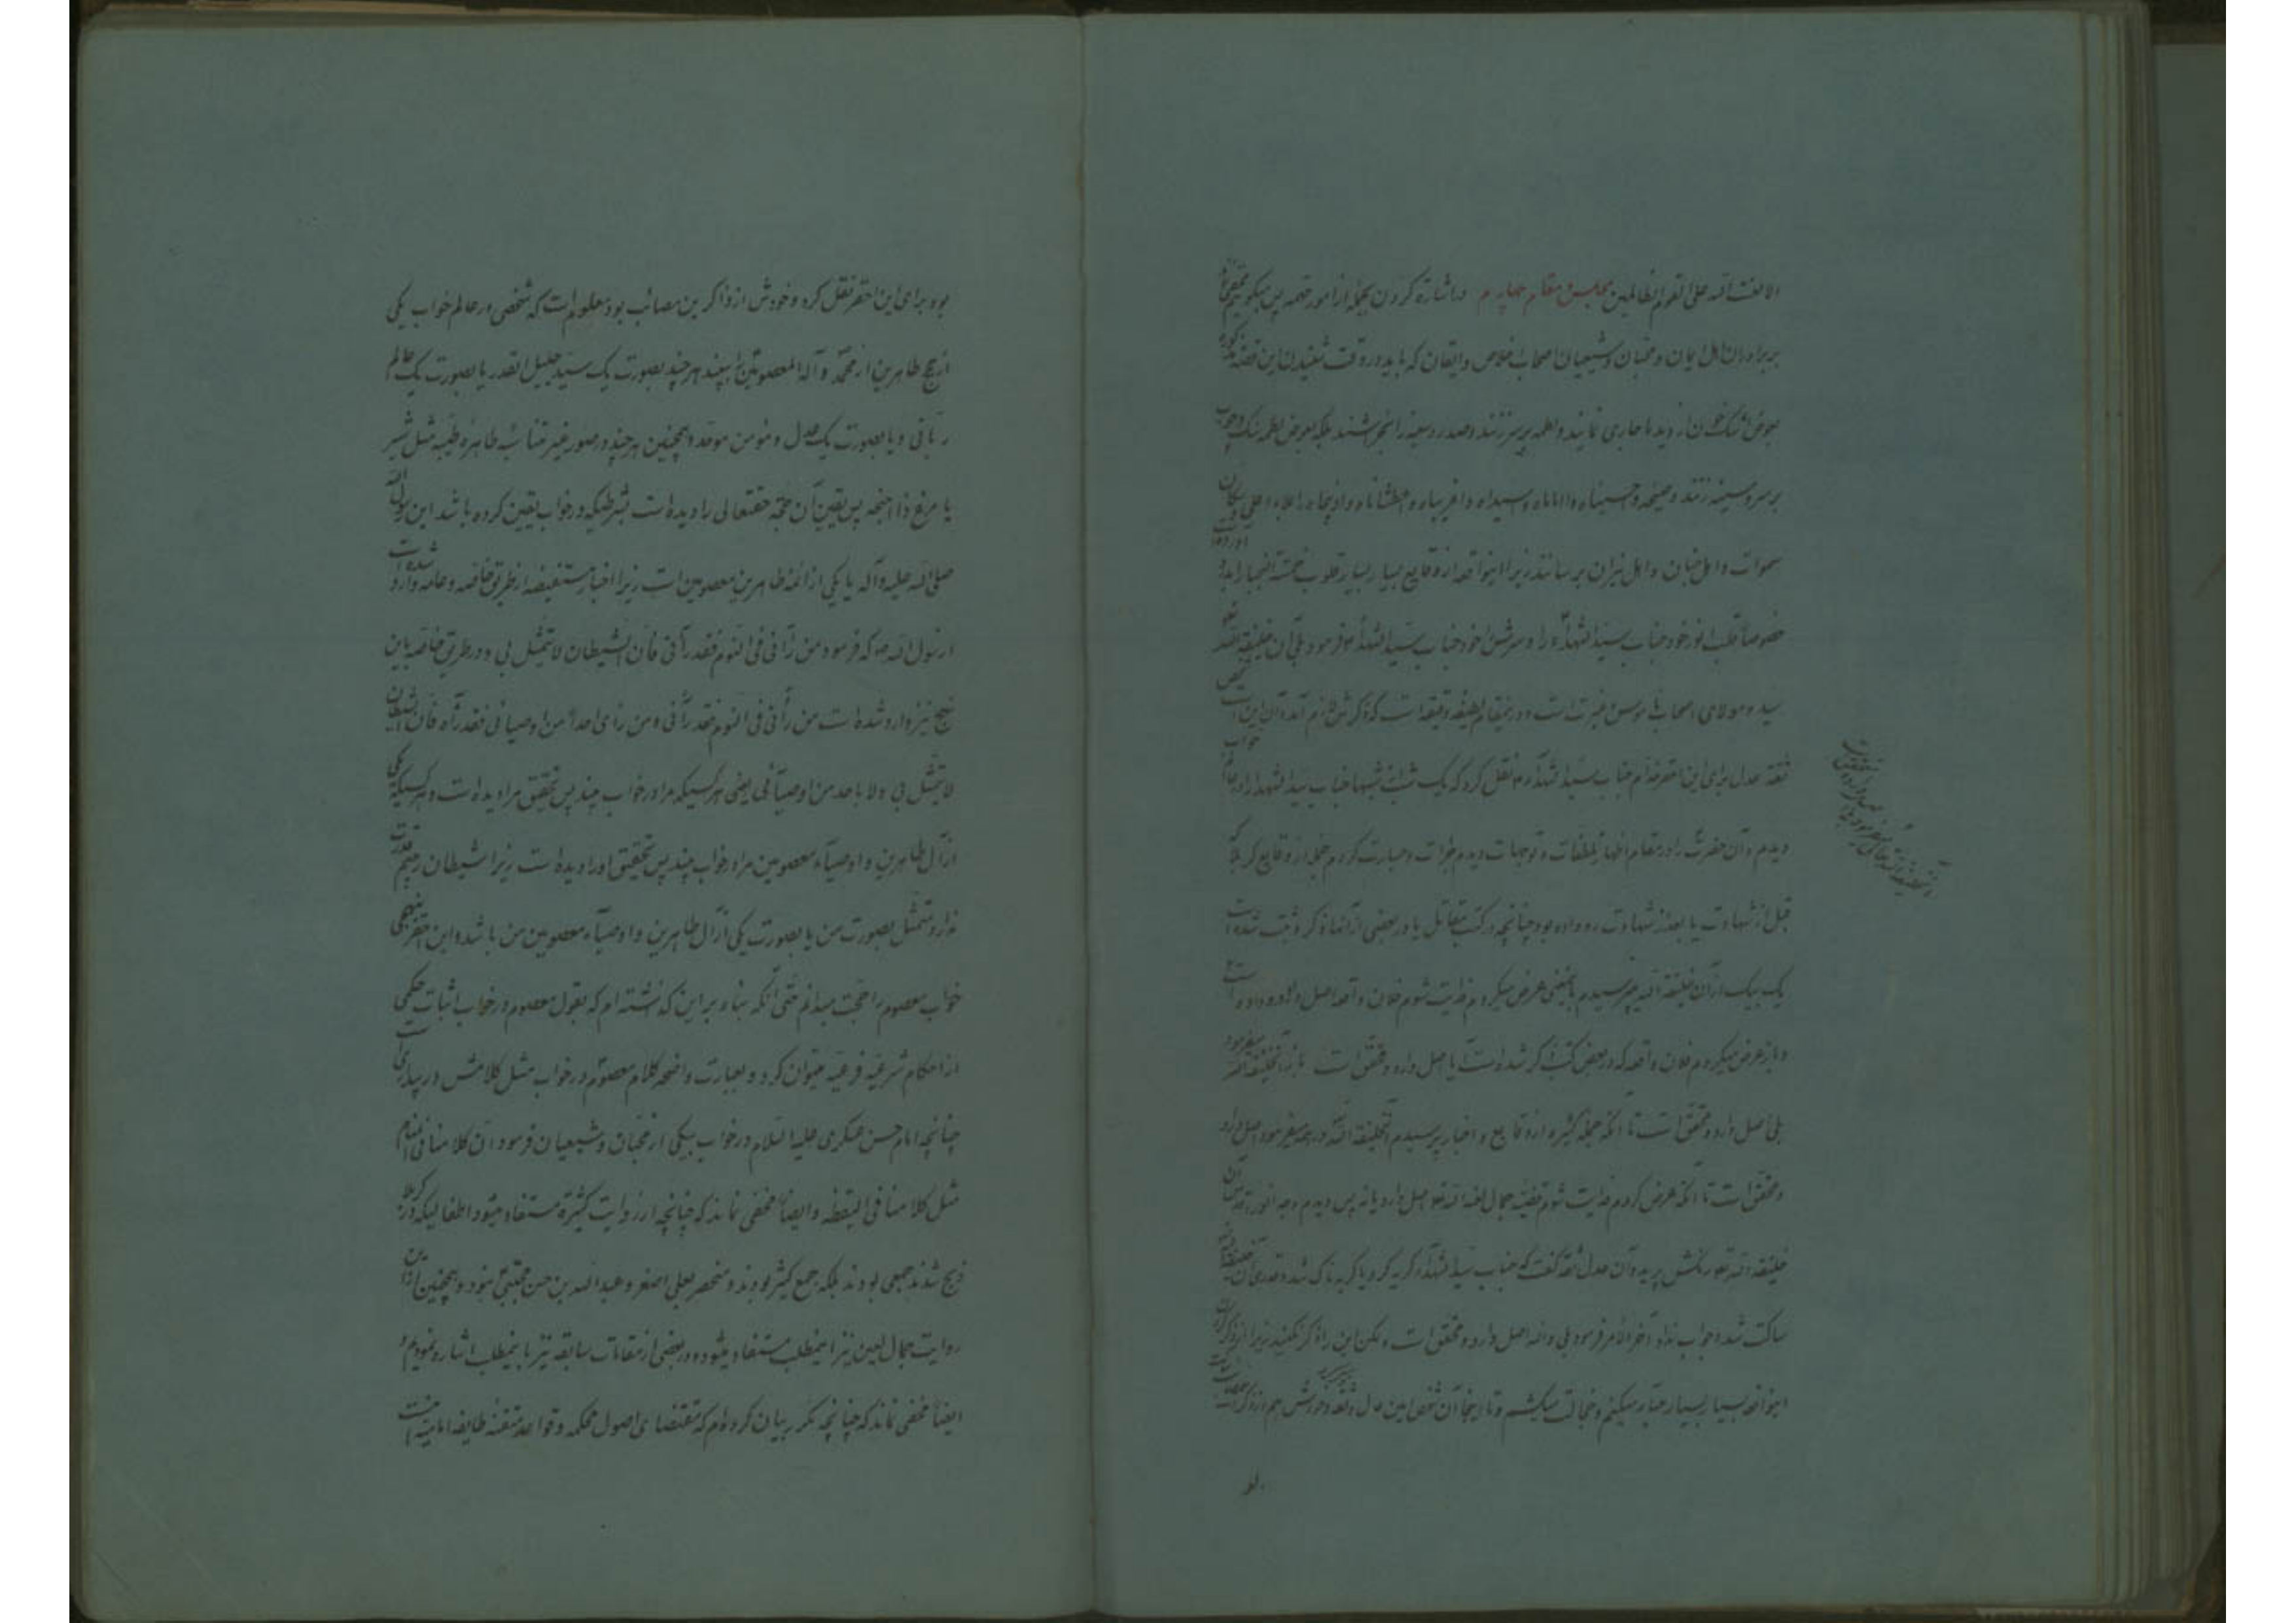 الا لعنت الله علی القوم الظالمین مجلس و مقام چهارم در اشاره کردن بجمله از امور مهمه پس میگویم مخفی نماند
بر برادران اهل ایمان و محبان و شیعیان اصحاب اخلاص و ایقان که باید در وقت شنیدن این قضیه مذکوره
بعوض اشک خون از دیدها جاری نمایند و لطمه بر سر زنند و صدر و سینه را بخراشند بلکه بعوض لطمه سنگ و چوب
بر سر و سینه زنند و صیحه وا حسیناه وا اماماه وا سیداه وا غریباه وا عطشاناه را باعلاء اعلی سکان
سموات و اهل جنان و اهل نیران برسانند زیرا اینواقعه از وقایع بسیار بسیار قلوب
خصوصا قلب انور خود جناب سید الشهداء را خود جناب سید الشهداء فرمود بلی آن خلیفة الله
سید و مولای اصحاب ناموس و غیرت است و در اینمقام لطیفه دقیقه است که ذکرش لازم آمد و آن این است شخص
ثقه عدل برای این احقر خدام جناب سید الشهداء نقل کرد که یک شب از شبها جناب سید الشهدا را در عالم خواب
دیدم و آن حضرت را در مقام اظهار تلطفات و توجهات دیدم جرات و جسارت کردم جمله از وقایع کربلا که
قبل از شهادت یا بعد از شهادت رو داده بود چنانچه در کتب مقاتل یا در بعضی از آنها ذکر و ثبت شده است
یک بیک از آن خلیفة الله پرسیدم یعنی عرض میکردم فدایت شوم فلان واقعه اصل دارد و رو داده است
و باز عرض میکردم فلان واقعه که در بعض کتب ذکر شده است آیا اصل دارد و محقق است باز آنخلیفة الله میفرمود
بلی اصل دارد و محقق است تا آنکه جمله کثیره از وقایع و اخبار پرسیدم آنخلیفة الله در همه میفرمود اصل دارد
و محقق است تا آنکه عرض کردم فدایت شوم قضیه جمال لعنه الله اصل دارد یا نه پس دیدم وجه انور اقدس آن
خلیفة الله رنگش پرید و آن عدل ثقه گفت که جناب سید الشهداء گریه کرد یا گریه ناک شد و قدری آن خلیفة الله
ساکت شد و جواب نداد آخر الامر فرمود بلی والله اصل دارد و محقق است ولکن این را ذکر نکنید زیرا از ذکر کردن
اینواقعه بسیار بسیار حیا میکنم و خجالت میکشم و تا اینجا آن شخص امین عدل و ثقه و خودش هم از ذاکرین
بود برای این احقر نقل کرد و خودش از ذاکرین مصائب بود معلوم است که شخص در عالم خواب یکی
از حجج طاهرین از محمد و آله المعصومین را ببیند هر چند بصورت یک سید جلیل القدر یا بصورت یک عالم
ربانی و یا بصورت یک عدل و مؤمن موحد و همچنین هر چند در صور غیر متناسبه طاهره طیبه مثل شیر
یا مرغ ذا اجنحه پس بیقین آن حجة حقتعالی را دیده است بشرطیکه در خواب یقین کرده باشد این رسول الله
صلی الله علیه و آله یا یکی از ائمه طاهرین معصومین است زیرا اخبار مستفیضه از طریق خاصه و عامه وارد شده است
از رسول الله ص که فرمود من رآنی فی النوم فقد رآنی فان الشیطان لا یتمثل بی و در طریق خاصه باین
نهج نیز وارد شده است من رآنی فی النوم فقد رآنی و من رأی احدا من اوصیائی فقد رآه فان الشیطان
لا یتمثل بی ولا باحد من اوصیائی یعنی هر کسیکه مرا در خواب ببیند پس بتحقیق مرا دیده است و هر کسیکه یکی
از آل طاهرین و اوصیاء معصومین مرا در خواب ببیند پس بتحقیق او را دیده است زیرا شیطان رجیم قدرت
ندارد متمثل بصورت من یا بصورت یکی از آل طاهرین و اوصیاء معصومین من باشد و این احقر
خواب معصوم را حجت میدانم حتی آنکه بناء بر این گذاشته ام که بقول معصوم در خواب اثبات حکمی
از احکام شرعیه فرعیه میتوان کرد و بعبارت واضحه کلام معصوم در خواب مثل کلامش در بیداری است
چنانچه امام حسن عسکری علیه السلام در خواب بیکی از محبان و شیعیان فرمود ان کلامنا فی المنام
مثل کلامنا فی الیقظه و ایضا مخفی نماند که چنانچه از روایت کثیره مستفاد میشود اطفالیکه در کربلا
ذبح شدند جمعی بودند بلکه جمع کثیر بودند و منحصر بعلی اصغر و عبد الله بن حسن مجتبی نبود و همچنین از این
روایت جمال لعین نیز اینمطلب مستفاد میشود و در بعضی از مقامات سابقه نیز باینمطلب اشاره نمودیم و
ایضا مخفی نماند که چنانچه مکرر بیان کرده ام که مقتضای اصول محکمه و قواعد متقنه طایفه امامیه